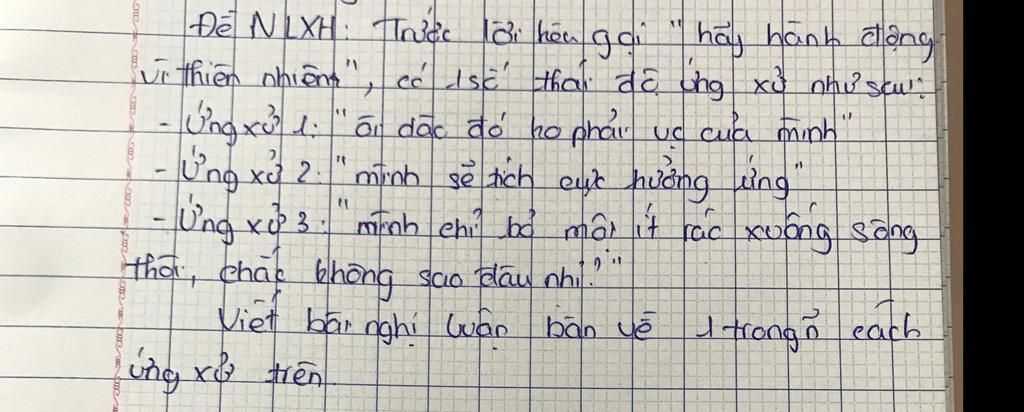 Đề NLXH: Trước lời kêu gọi "hãy hành động
vì thiên nhiên", có 1 số thái độ ứng xử như sau:
- Ứng xử 1: "ôi dào đó ko phải vc của mình"
- Ứng xử 2: "mình sẽ tích cực hưởng ứng"
- Ứng xử 3: "mình chỉ bỏ một ít rác xuống sông
thôi, chắc không sao đâu nhỉ?"
Viết bài nghị luận bàn về 1 trong n~ cách
ứng xử trên.